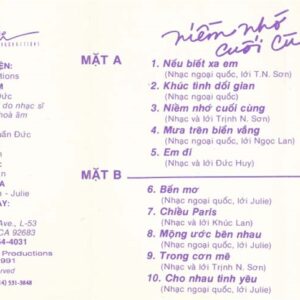 niềm nhớ
cuối cù
PRODUCTIONS
ỆN:
tions
M
Đức
do nhạc sĩ
hoà âm
uấn Đức
A
n - Julie
AY:
Ave., L-53
CA 92683
54-4031
Productions
1991
served
14) 531-3848
MẶT A
1. Nếu biết xa em
(Nhạc ngoại quốc, lời T.N. Sơn)
2. Khúc tình dối gian
(Nhạc ngoại quốc)
3. Niềm nhớ cuối cùng
(Nhạc và lời Trịnh N. Sơn)
4. Mưa trên biển vắng
(Nhạc ngoại quốc, lời Ngọc Lan)
5. Em đi
(Nhạc và lời Đức Huy)
MẶT B
6. Bến mơ
(Nhạc ngoại quốc, lời Julie)
7. Chiều Paris
(Nhạc và lời Khúc Lan)
8. Mộng ước bên nhau
(Nhạc ngoại quốc, lời Julie)
9. Trong cơn mê
(Nhạc và lời Trịnh N. Sơn)
10. Cho nhau tình yêu
(Nhạc ngoại quốc, lời Julie)